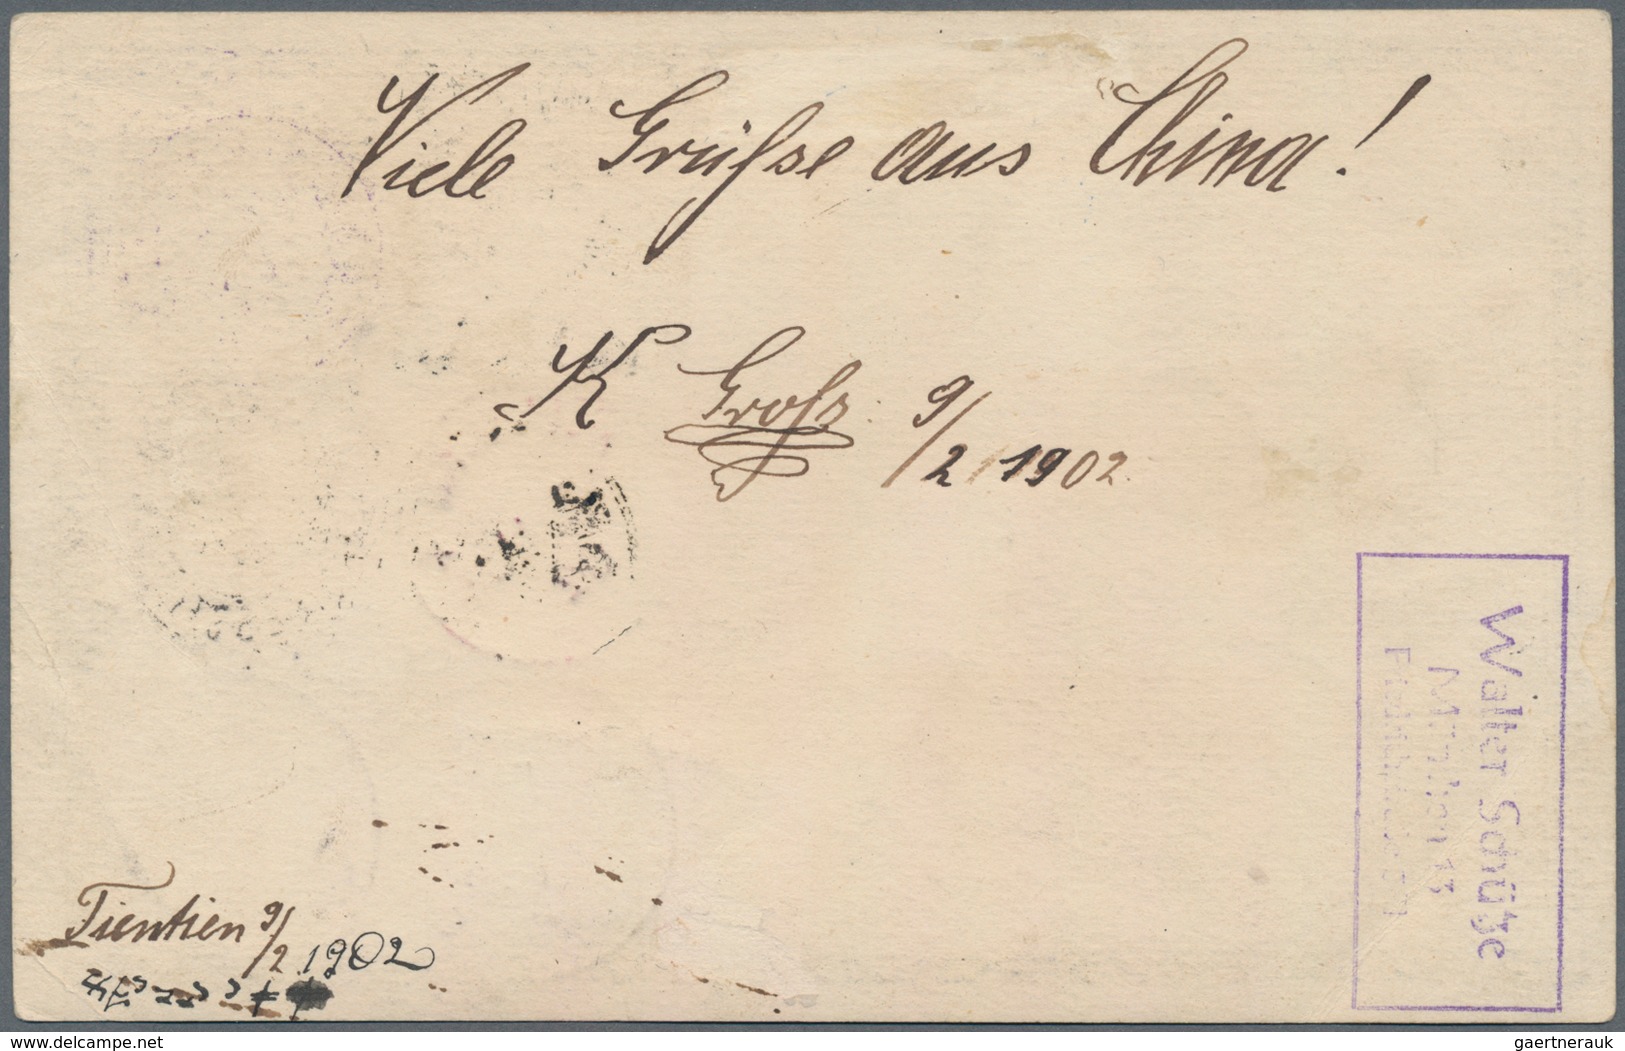 Viele Grüße aus China!
K Groß. 9/2/1902.
Tientien 9/2.1902
Walter Schütze
München 13
delcampe.net
gaertnerauk